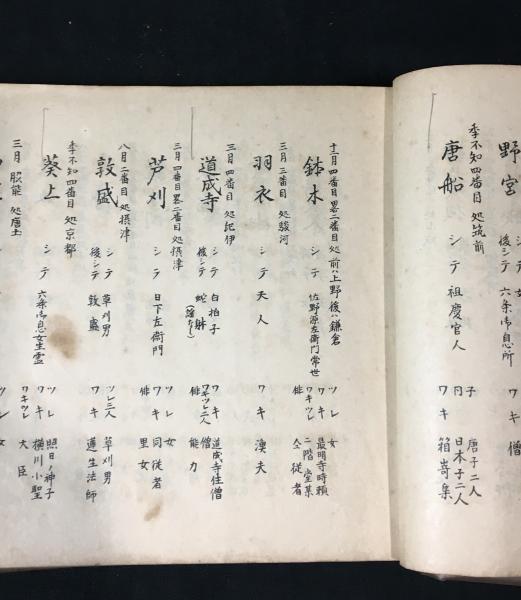 野宮 後シテ 六条御息所 ワキ 僧
季不知四番目 処筑前
唐船 シテ 祖慶官人 子 唐子二人
同 日本子二人
ワキ 箱崎某
十二月四番目畧二番目 処前ハ上野後ハ鎌倉
鉢木 シテ 佐野源左衛門常世 ツレ 女
ワキ 最明寺時頼
ワキツレ 二階堂某
俳 仝従者
三月三番目 処駿河
羽衣 シテ 天人 ワキ 漁夫
三月四番目 処紀伊
道成寺 シテ 白拍子 ワキ 道成寺住僧
後シテ 蛇躰 ワキツレ二人 僧
俳 能力
三月四番目畧二番目 処摂津
芦刈 シテ 日下左衛門 ツレ 女
ワキ 同従者
俳 里女
八月二番目 処摂津
敦盛 シテ 草刈男 ツレ二人 草刈男
後シテ 敦盛 ワキ 蓮生法師
季不知四番目 処京都
葵上 シテ 六条御息女生霊 ツレ 照日ノ神子
ワキ 横川小聖
ワキツレ 大臣
三月 脇能 処唐土
女